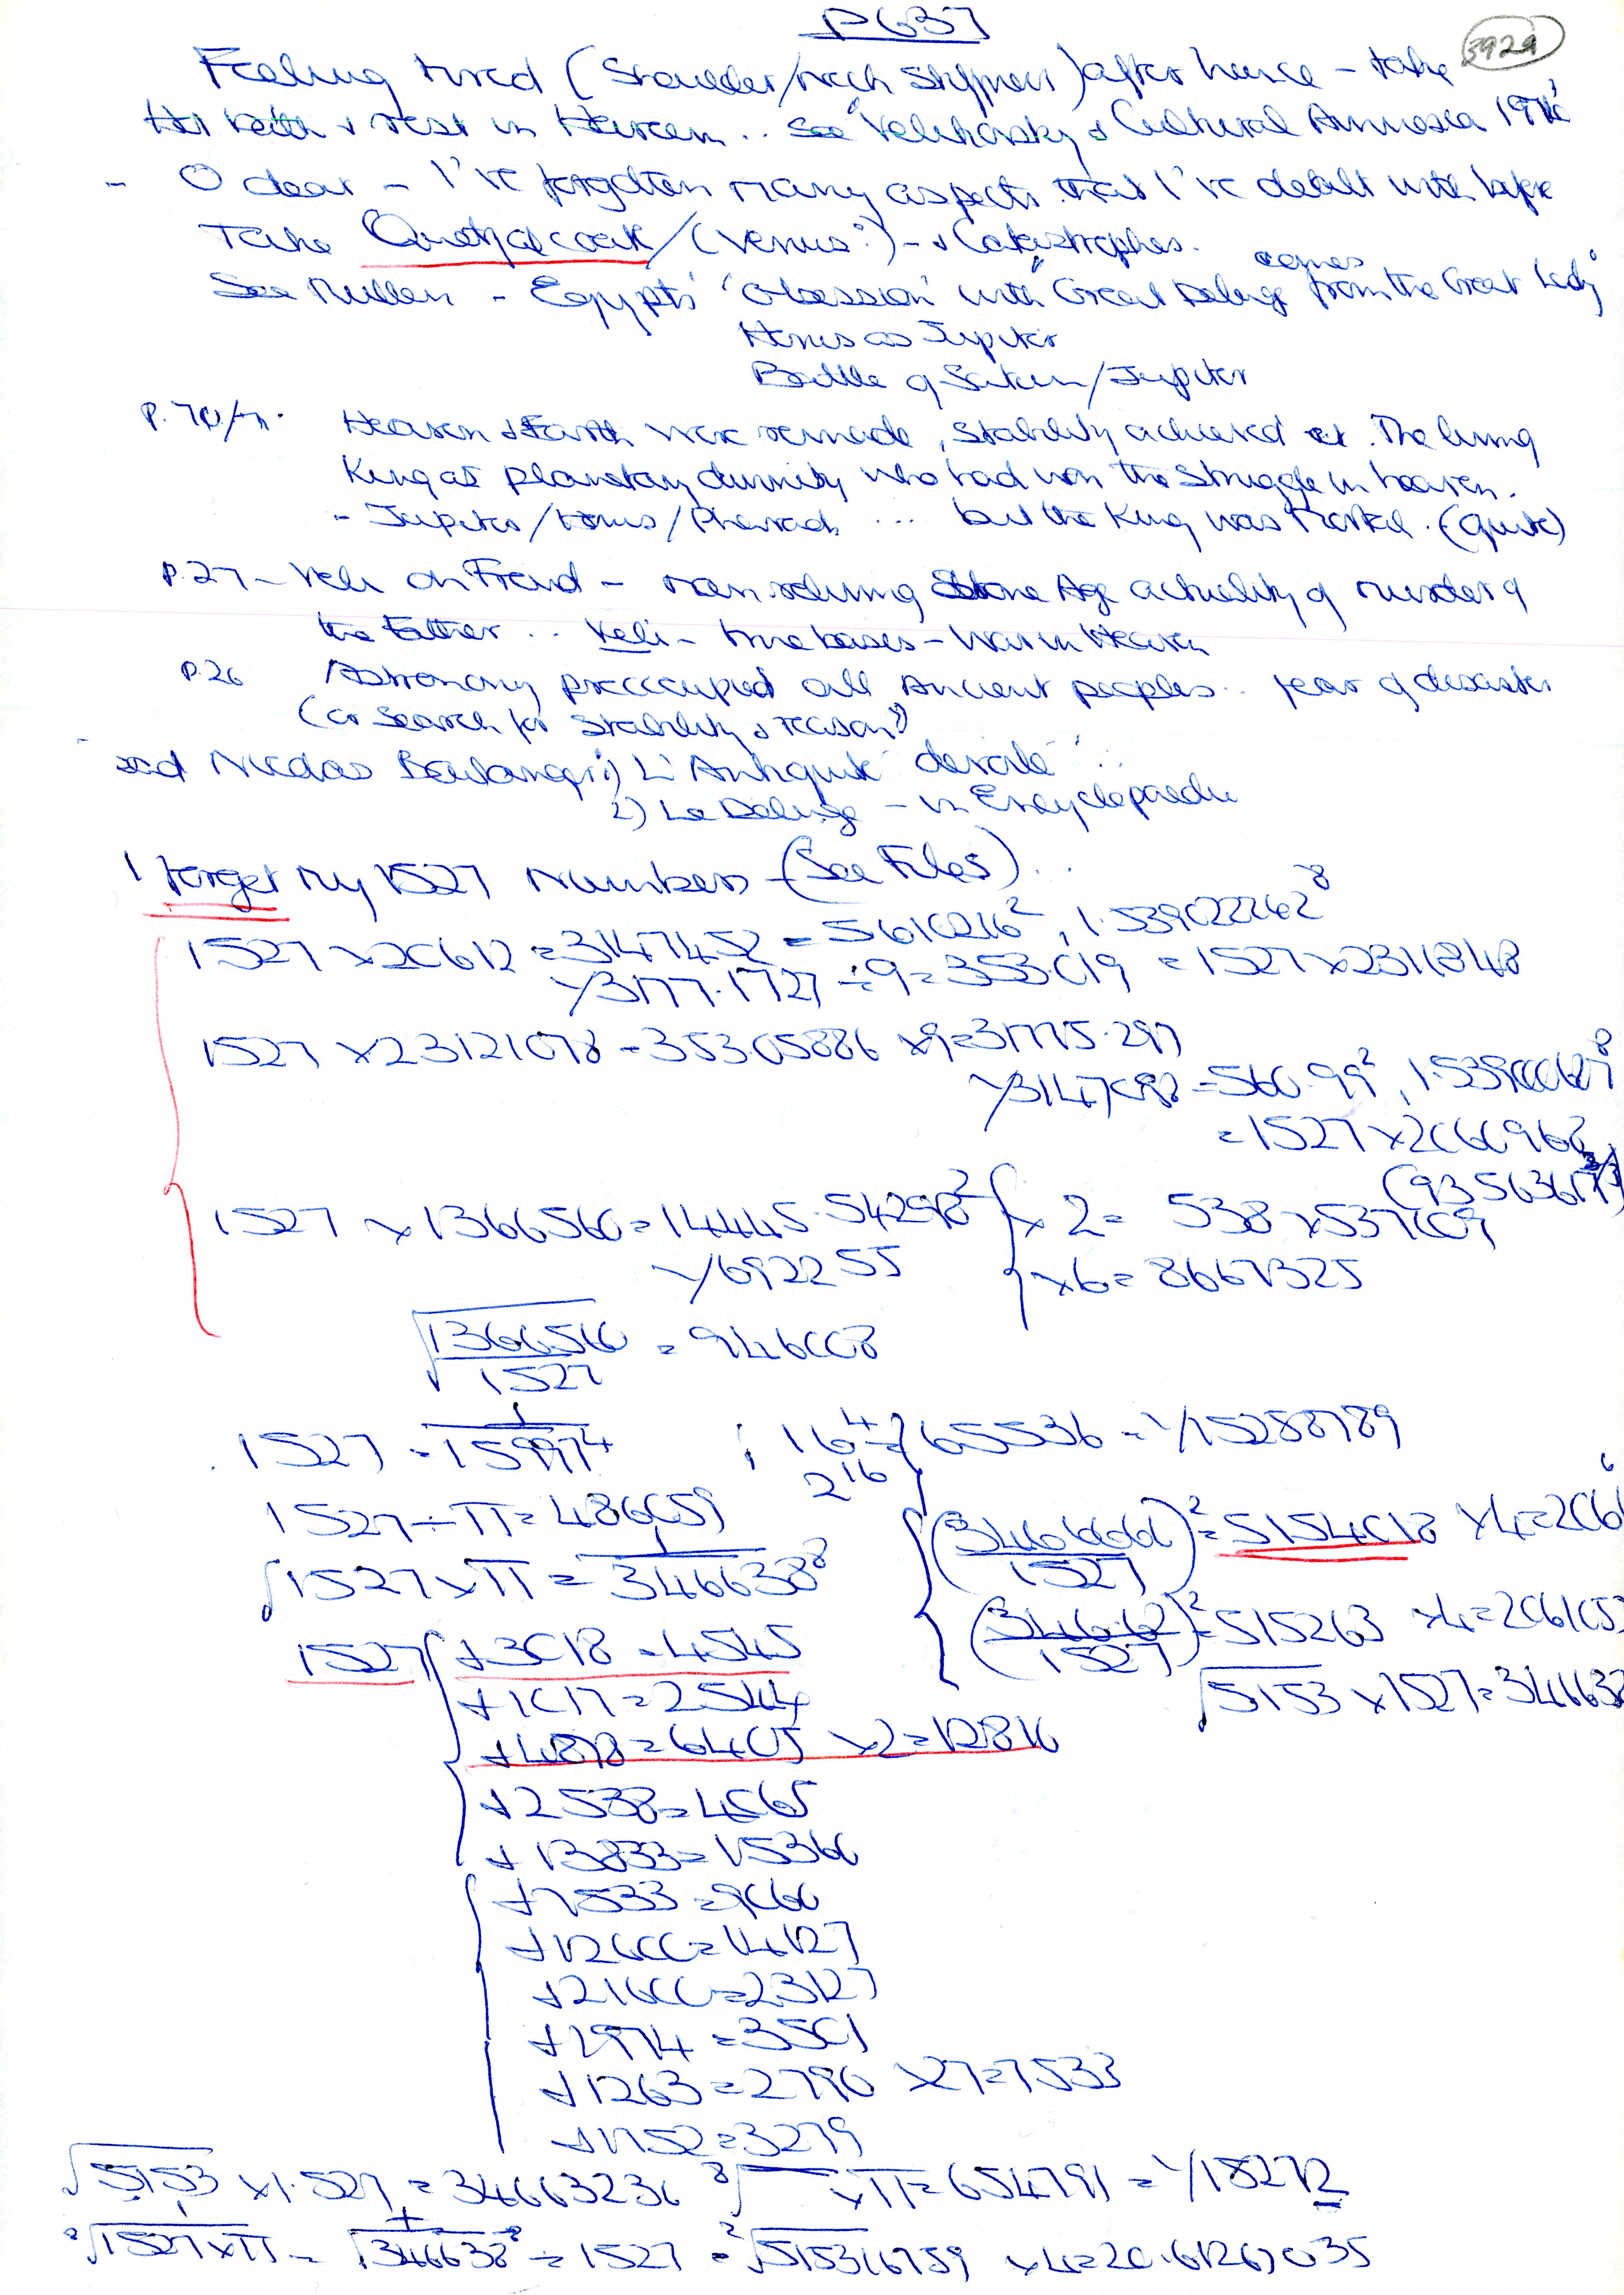 PG37
3929
Feeling tired (Shoulder/neck stiffness) after hence - take
Hot bath & rest in Haven .. See Velikovsky & Cultural Amnesia 197
- O dear - I've forgotten many aspects that I've dealt with before
Take Quetzalcoatl / (Venus?) - & Catastrophes.
See Mullen - Egypt's 'Obsession' with "Great Deluge comes from the Great Lady
Horus as Jupiter
Battle of Saturn/Jupiter
Heaven & Earth were remade, stability achieved. The living
King as planetary divinity who had won the struggle in heaven.
- Jupiter/Horus/Pharaoh ... but the King was Mortal. (quite)
P.27 - Veli on Freud - man reliving Stone Age actuality of murder of
the father .. Veli - true bases - War in Heaven
P.26 Astronomy preoccupied all Ancient peoples .. fear of disaster
(or search for stability & reason?)
and Nicolas Boulanger 1) L'Antiquité devoilé
2) Le Deluge - in Encyclopaedie
I forget my 1527 Numbers - (See Files) ..
1527 × 20612 = 3147452 = 5610216², 1.539022262⁸
1/3177.1727 ÷ 9 = 353.019 = 1527 × 2311848
1527 × 23121078 = 353.05886 × 9 = 31775.297
1/3147098 = 560.99²,
= 1527 × 2060968
1527 × 1366560 = 14445.54298² × 2 = 538 × 537109
1/692255 × 6 = 8667325
√1366560/1527 = 946008
1527 = 1/159974 ; 16⁴ = 2¹⁶ 65536 = 1/15288789
1527 ÷ π = 486059 (3466666/1527)² = 5154018 × 4 = 2061
√1527 × π = 1/346638⁸ (34662/1527)² = 515263 × 4 = 206105
1527 + 3018 = 4545 √5153 × 1527 = 346638
+ 1017 = 2544
+ 4878 = 6405 × 2 = 12816
+ 2538 = 4065
+ 13833 = 15360
+ 7533 = 9060
+ 12600 = 14127
+ 21600 = 23127
+ 1974 = 3501
+ 1263 = 2790 × 27 = 7533
+ 1752 = 3279
√5153 × 1.527 = 34663236 × π = 654791 = 1/15272
√1527 × π = 1/346638⁸ ÷ 1527 = √515316759 × 4 = 20.61267035